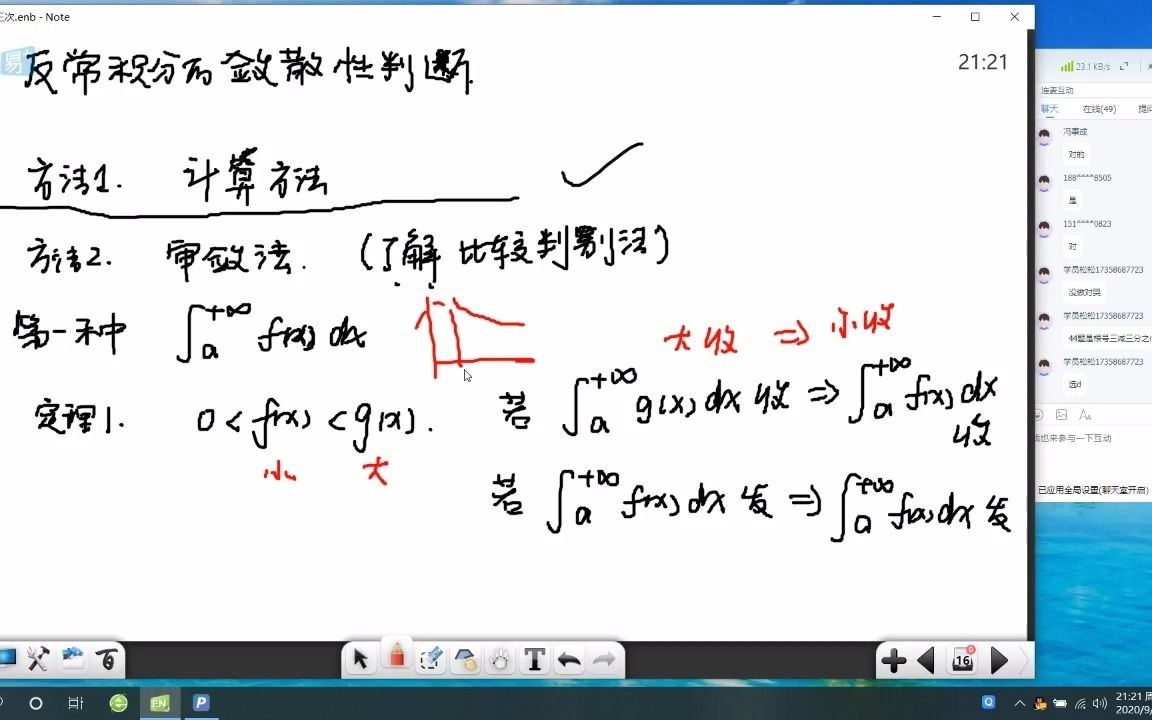 三次.enb - Note
21:21
反常积分的敛散性判断
方法1. 计算方法
方法2. 审敛法. (了解 比较判别法)
第一种 ∫_a^{+∞} f(x) dx
大收 ⇒ 小收
定理1. 0 < f(x) < g(x).
小 大
若 ∫_a^{+∞} g(x) dx 收 ⇒ ∫_a^{+∞} f(x) dx
收
若 ∫_a^{+∞} f(x) dx 发 ⇒ ∫_a^{+∞} f(x) dx 发
易
T
16
23.1 KB/s
连麦互动
聊天 在线(49) 提问
冯事成
对的
188****8505
是
151****0823
对
学员松松17358687723
没做对哭
学员松松17358687723
44题是根号三减三分之
学员松松17358687723
选d
我也来参与一下互动
已应用全局设置(聊天室开启)
EN
P
21:21 周
2020/9/